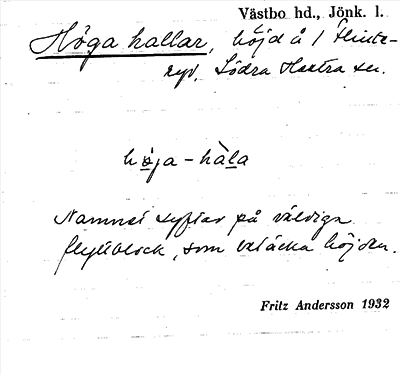 Västbo hd., Jönk. l.
Höga hallar, höjd å 1 Flinte-
ryd, Södra Hestra sn.
höga - hàla
Namnet syftar på väldiga
flyttblock, som betäcka höjden.
Fritz Andersson 1932